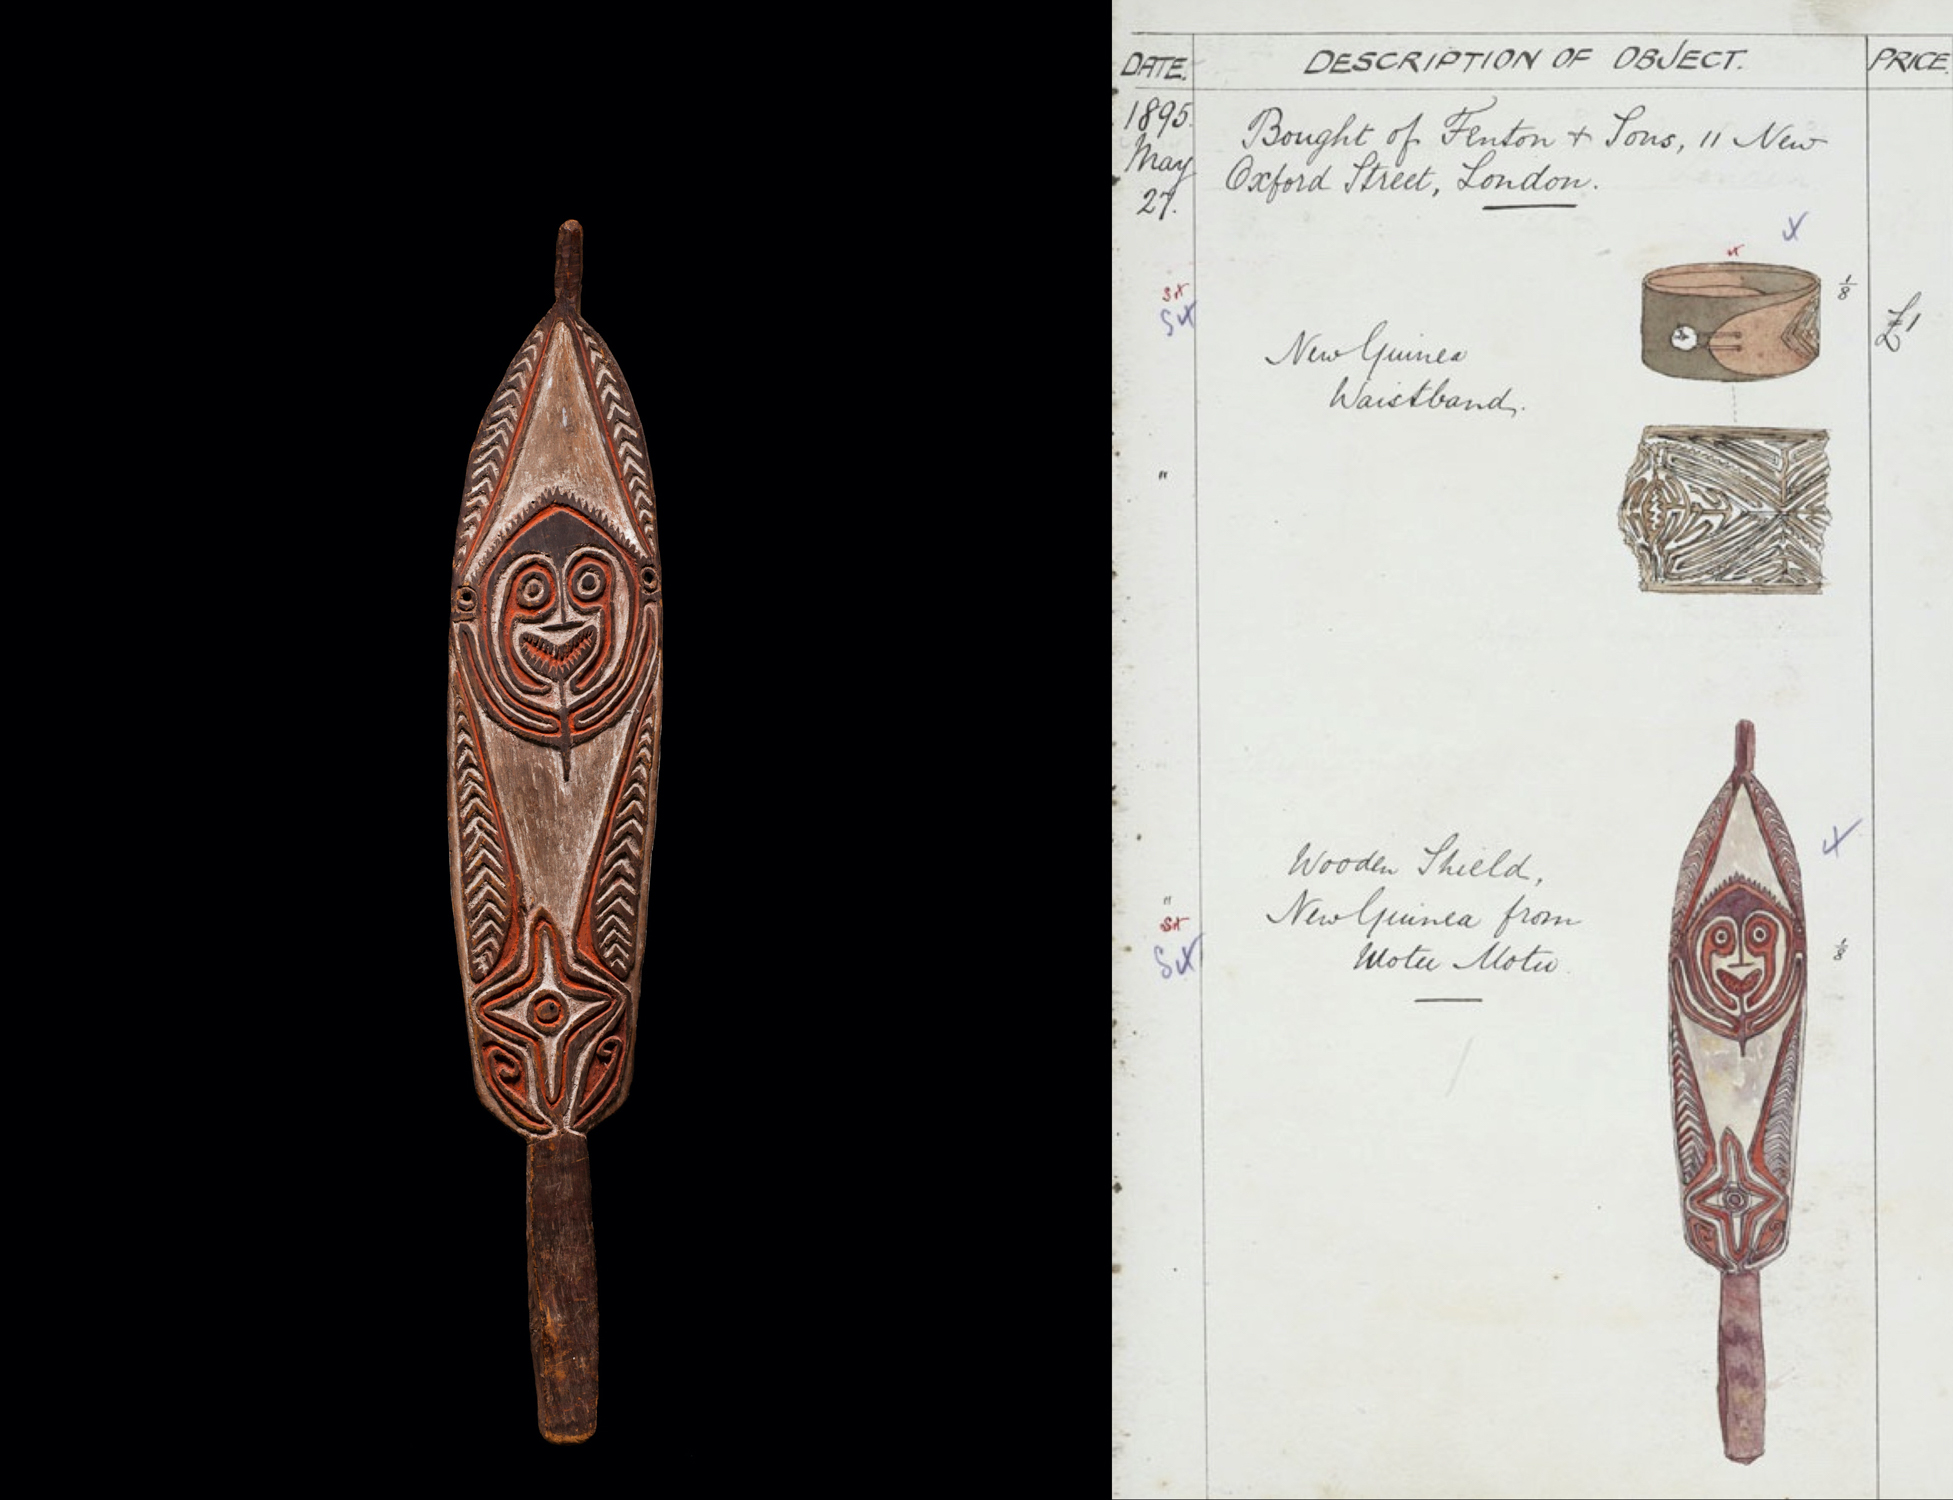 DATE. DESCRIPTION OF OBJECT. PRICE.
1895. May 27. Bought of Fenton + Sons, 11 New
Oxford Street, London.
1/8
£1
New Guinea
Waistband.
"
Wooden Shield,
" New Guinea from
Motu Motu.
1/8